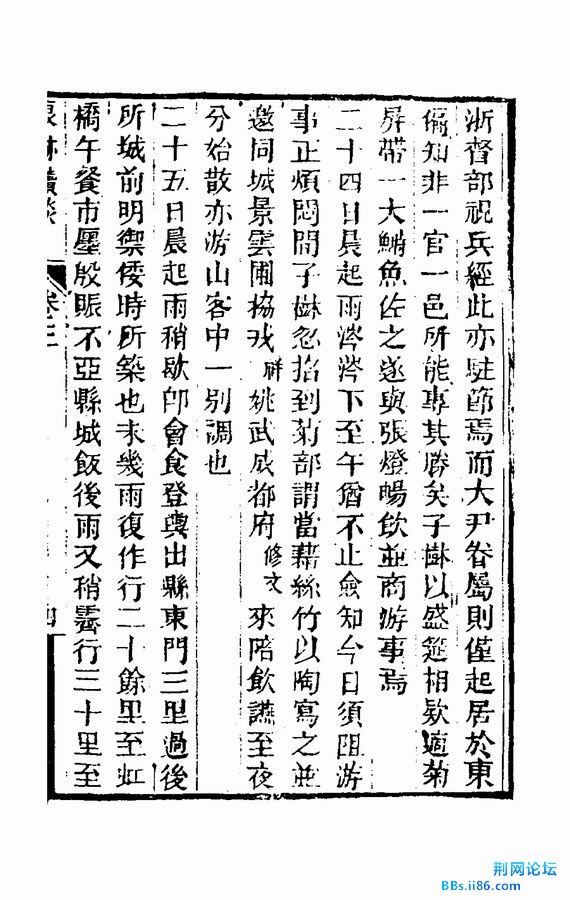 浙督部視兵經此亦駐節焉而大尹眷屬則僅起居於東
偏知非一官一邑所能專其勝矣子樹以盛筵相欵適菊
屏帶一大鰣魚佐之遂與張燈暢飲並商游事焉
二十四日晨起雨滂滂下至午猶不止僉知今日須阻游
事正煩悶間子樹忽招到菊部謂當藉絲竹以陶寫之並
邀同城景雲圃協戎祥姚武成都府修文來陪飲讌至夜
分始散亦游山客中一別調也
二十五日晨起雨稍歇卽會食登輿出縣東門三里過後
所城前明禦倭時所築也未幾雨復作行二十餘里至虹
橋午餐市廛殷賑不亞縣城飯後雨又稍霽行三十里至
浪跡續談 卷二 四
荆网论坛
BBs.ii86.com